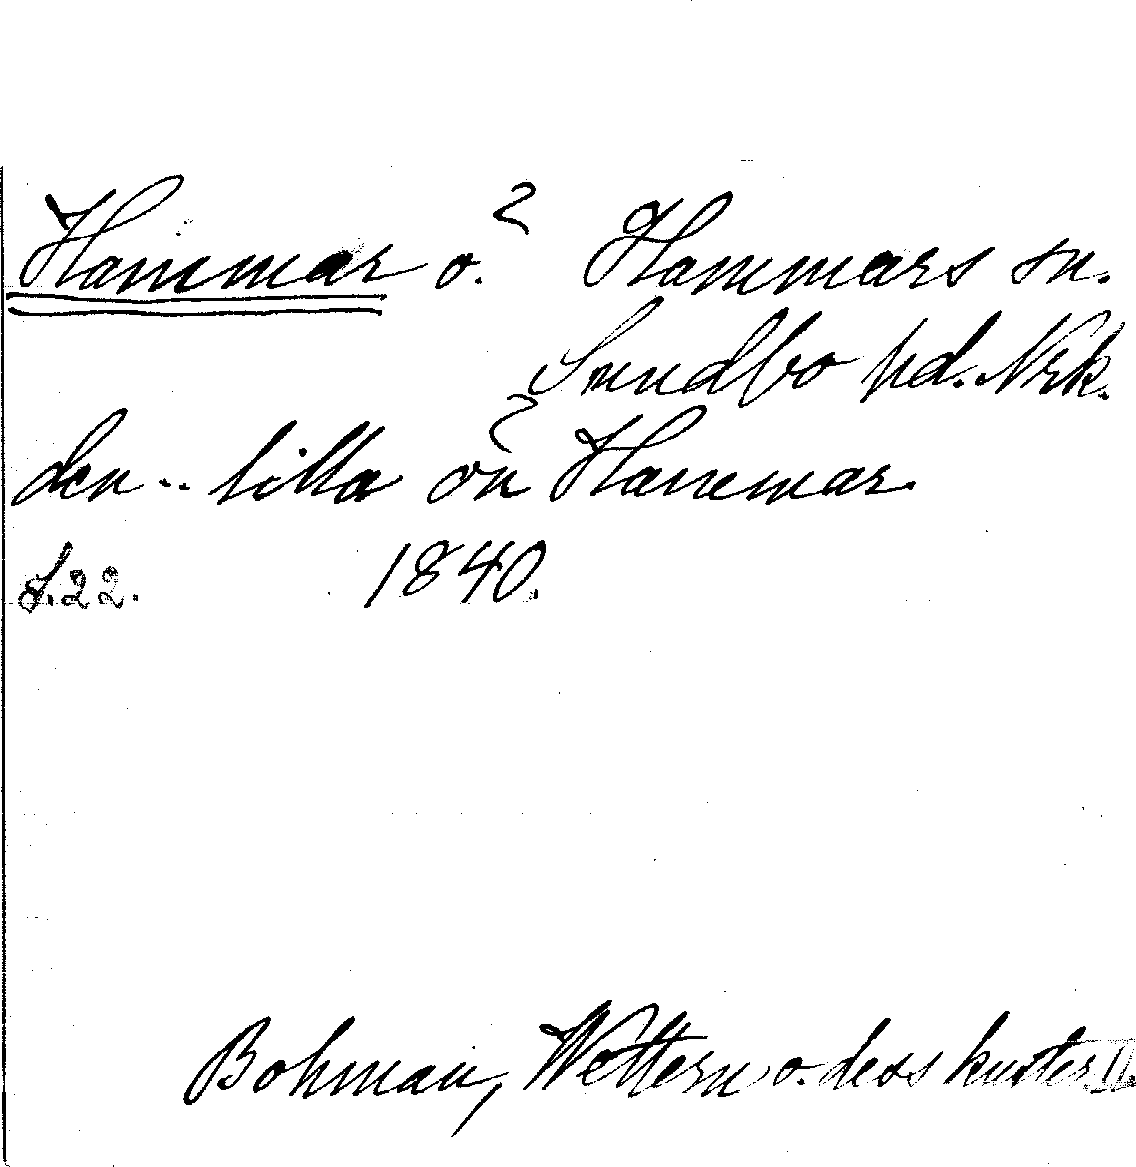 Hammar ö. Hammars sn.
Sundbo hd. Nrk.
den .. lilla ön Hammar.
S. 22. 1840.
Bohman, Wettern o. dess kuster II.